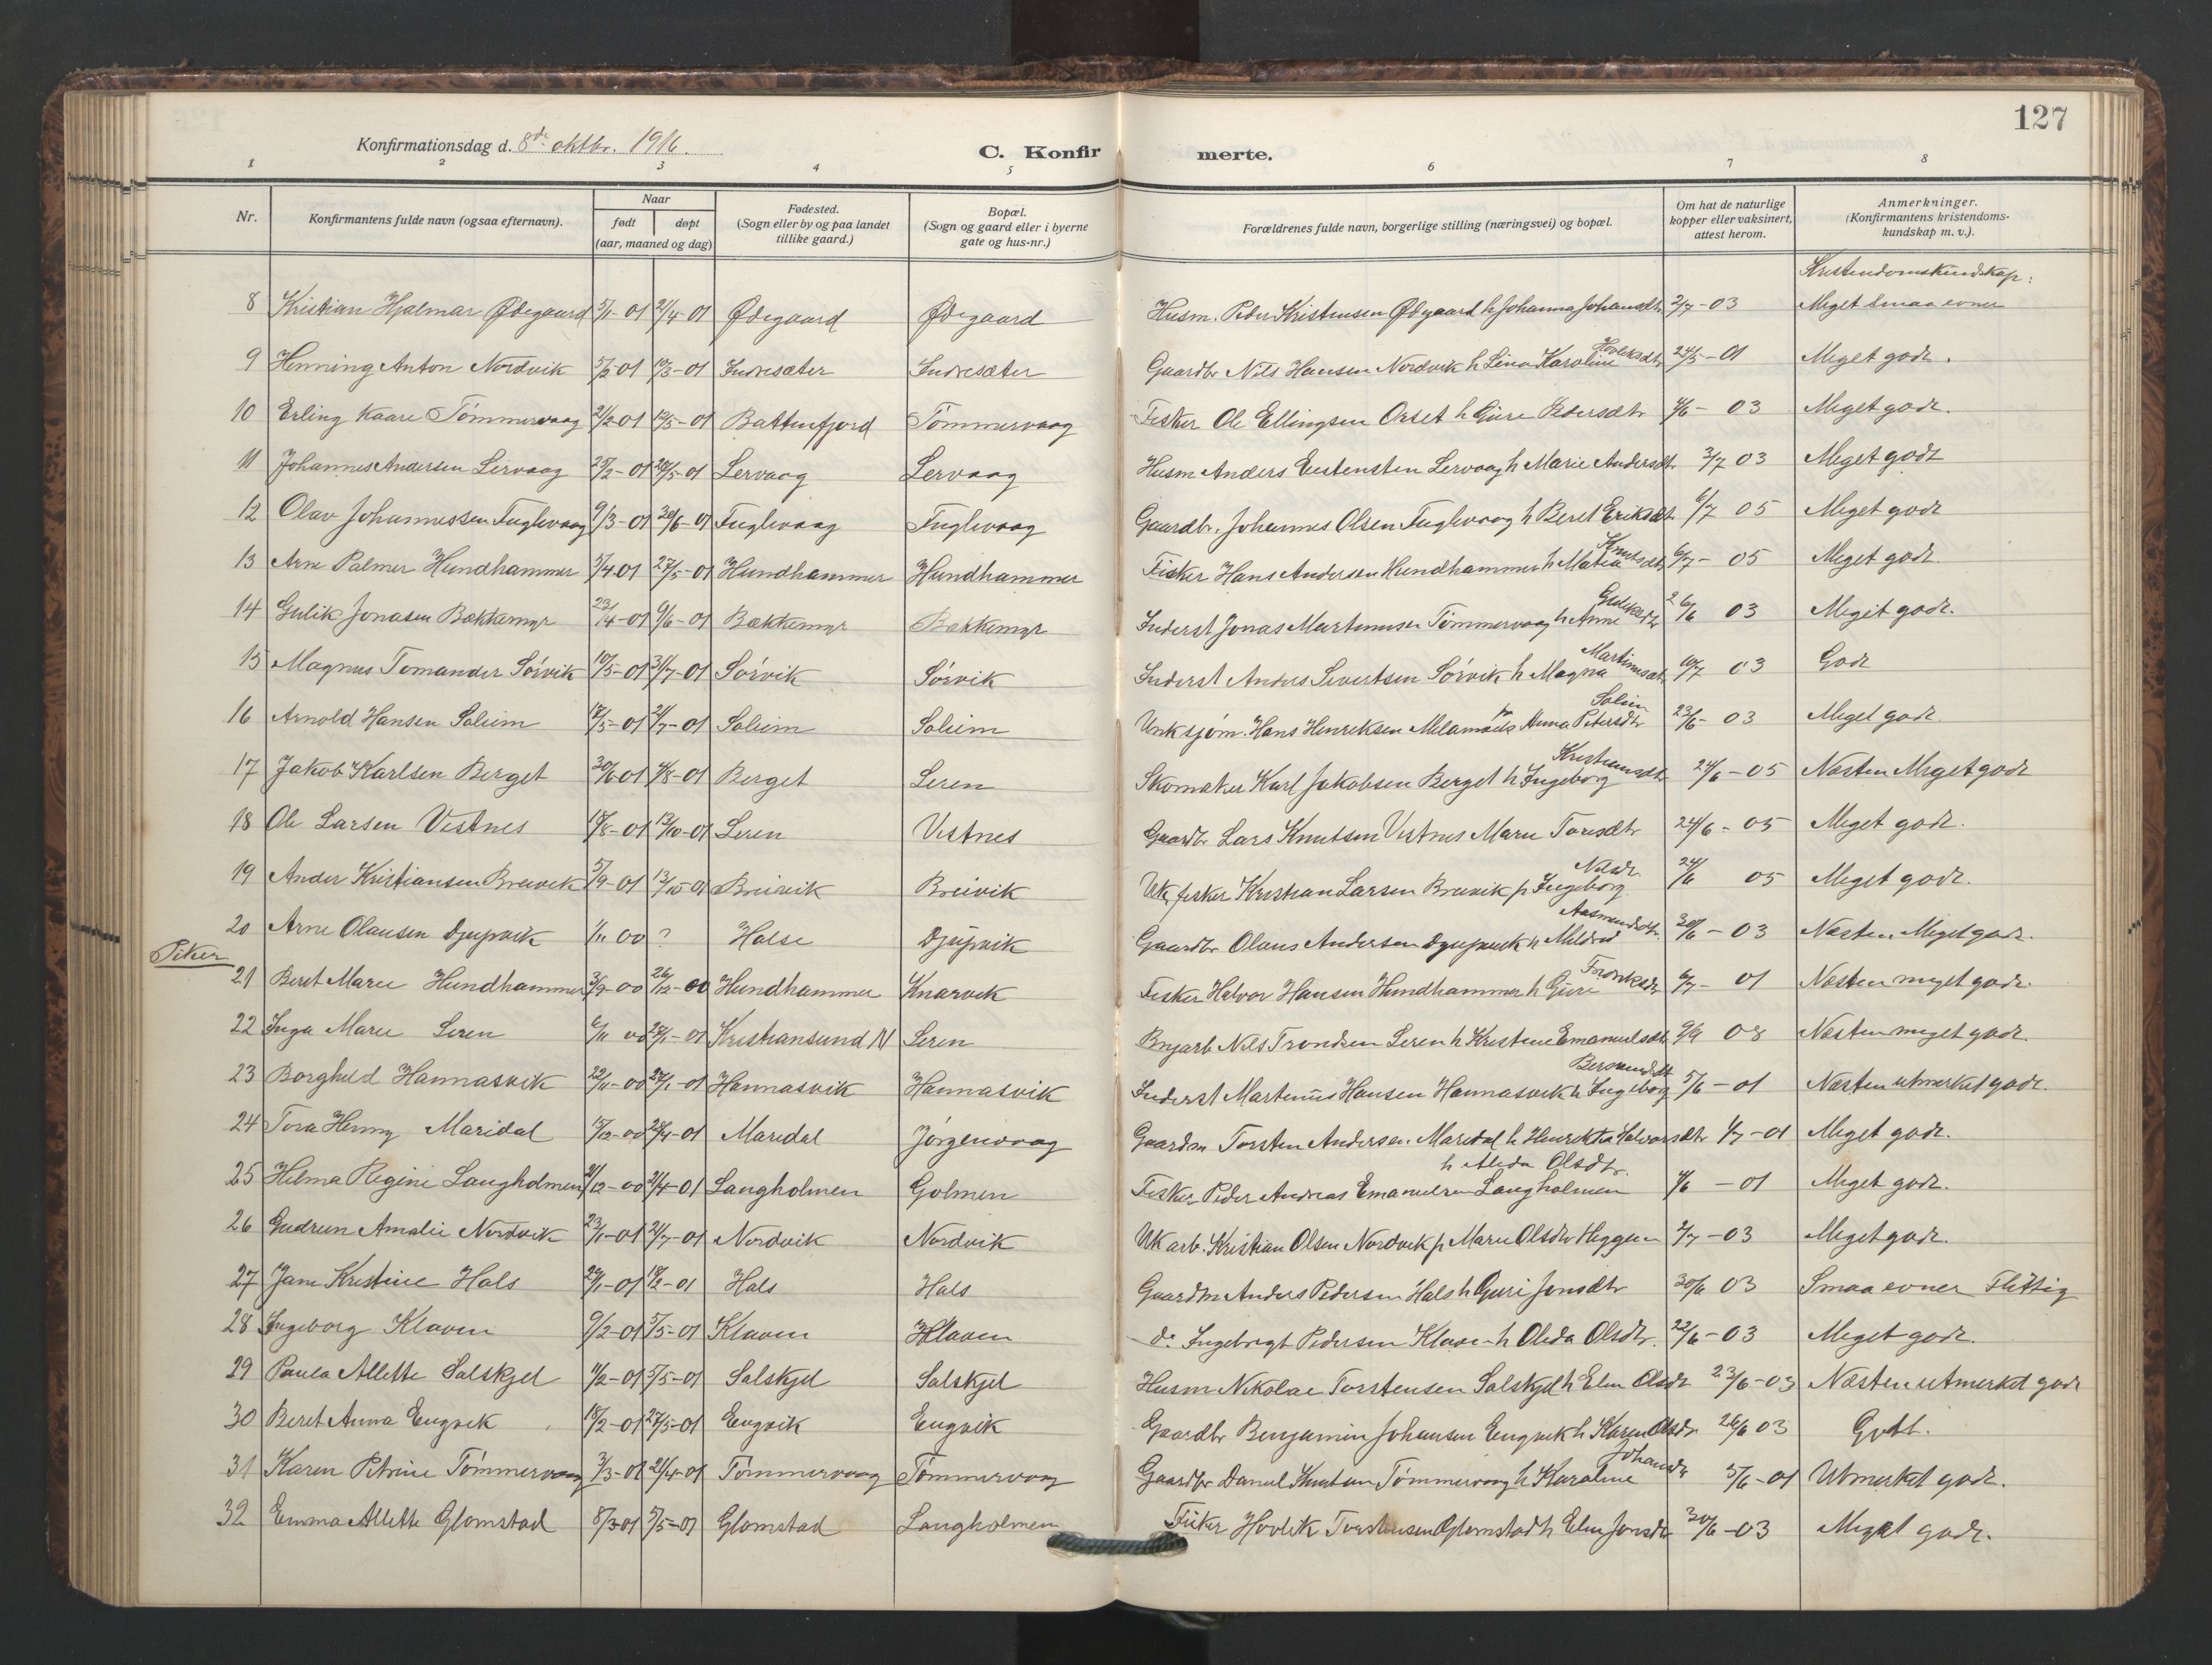 127
Konfirmationsdag d. 8de oktbr. 1916.
C. Konfirmerte.
1 2 3 4 5 6 7 8
Nr.
Konfirmantens fulde navn (ogsaa efternavn).
Naar
født døpt
(aar, maaned og dag)
Fødested.
(Sogn eller by og paa landet
tillike gaard.)
Bopæl.
(Sogn og gaard eller i byerne
gate og hus-nr.)
Forældrenes fulde navn, borgerlige stilling (næringsvei) og bopæl.
Om hat de naturlige
kopper eller vaksinert,
attest herom.
Anmerkninger.
(Konfirmantens kristendoms-
kundskap m. v.).
Kristendomskundskap:
8 Kristian Hjalmar Ødegaard 5/1-01 21/4-01 Ødegaard Ødegaard Husm. Peder Kristensen Ødegaard h Johanna Johansdtr 2/7-03 Meget smaa evner
9 Henning Anton Nordvik 5/2 01 10/3-01 Indresæter Indresæter Gaardbr Nils Hansen Nordvik h Lina Karoline 24/5-01 Meget godt.
10 Erling Kaare Tømmervaag 21/2 01 12/5-01 Battenfjord Tømmervaag Fisker Ole Ellingsen Orset h Guri Pedersdtr 4/6-03 Meget godt.
11 Johannes Andersen Lervaag 25/2-01 28/5-01 Lervaag Lervaag Husm Anders Eestensten Lervaag h Marie Andersdt 3/7 03 Meget godt
12 Olav Johannessen Fuglevaag 9/3-01 30/6-01 Fuglevaag Fuglevaag Gaardbr. Johannes Olsen Fuglevaag h Beret Eriksdt 6/7 05 Meget godt
13 Arne Palmer Hundhammer 5/4 01 27/5-01 Hundhammer Hundhammer Fisker Hans Andersen Hundhammer h Matea Knutsdt 6/7-05 Meget godt.
14 Gulik Jonasen Bækkemyr 23/4-01 9/6-01 Bækkemyr Bækkemyr Inderst Jonas Martinusen Tømmervaag h Anne Guliksdtr 26/6 03 Meget godt.
15 Magnus Tomander Sørvik 10/5-01 31/7-01 Sørvik Sørvik Inderst Anders Sivertsen Sørvik h Magna Martinusdt 10/7 03 Godt
16 Arnold Hansen Soleim 18/5-01 21/7-01 Soleim Soleim Unk sjøm. Hans Henriksen p Anna Petersdtr Solem 23/6-03 Meget godt.
17 Jakob Karlsen Berget 30/6 01 4/8-01 Berget Leren Skomaker Karl Jakobsen Berget h Ingeborg Kristiansdt 24/6-05 Næsten Meget godt
18 Ole Larsen Vestnes 18/8-01 13/10-01 Leren Vestnes Gaardbr Lars Knutsen Vestnes Marie Toresdtr 24/6-05 Meget godt.
19 Ander Kristiansen Breivik 5/9-01 13/10-01 Breivik Breivik Uk. fisker Kristian Larsen Breivik p Ingeborg Nilsdr. 24/6 05 Meget godt.
20 Arne Olausen Djupvik 1/11 00 ? Halse Djupvik Gaardbr Olaus Andersen Djupvik h Mildrid Aasmundsdtr. 30/6-03 Næsten Meget godt.
Piker
21 Beret Marie Hundhammer 3/9-00 26/12-00 Hundhammer Knarvik Fisker Halvor Hansen Hundhammer h Guri 6/7-01 Næsten meget godt.
22 Inga Marie Leren 6/11 00 27/1-01 Kristiansund N Leren Bryarb Nils Trondsen Leren h Kristine Emanuelsdt 9/9 08 Næsten meget godt.
23 Borghild Hannasvik 22/11-00 27/1-01 Hannasvik Hannasvik Inderst Martinus Hansen Hannasvik h Ingeborg 5/6-01 Næsten utmerket godt.
24 Tora Henny Maridal 15/12-00 28/4-01 Maridal Jørgenvaag Gaardm Torsten Andersen Maridal h Henrikta Halvorsdtr 1/7-01 Meget godt.
25 Helma Regine Langholmen 21/12-00 21/4-01 Langholmen Golmen Fisker Peder Andreas Emanuelsen Langholmen h Aleda Olsdtr. 4/6-01 Meget godt.
26 Gudrun Amalie Nordvik 23/1-01 21/7-01 Nordvik Nordvik Uk arb. Kristian Olsen Nordvik p Marie Olsdtr Heggen 2/7-03 Meget godt.
27 Jane Kristine Hals 29/1-01 18/2-01 Hals Hals Gaardm Anders Pedersen Hals h Guri Jonsdtr 30/6 03 Smaa evner Flittig
28 Ingeborg Klaven 9/2-01 5/5-01 Klaven Klaven do Ingebrigt Pedersen Klaven h Oleda Olsdtr. 22/6-03 Meget godt.
29 Paula Allette Salskjel 11/2-01 5/5-01 Salskjel Salskjel Husm Nikolai Torstensen Salskjel h Elen Olsdr 23/6-03 Næsten utmerket godt
30 Beret Anna Engvik 18/2-01 27/5-01 Engvik Engvik Gaardbr Benjamin Johansen Engvik h Karen Olsdr 26/6 03 Godt.
31 Karen Petrine Tømmervaag 3/3-01 21/4-01 Tømmervaag Tømmervaag Gaardbr Daniel Knutsen Tømmervaag h Karoline Johansdr 5/6-01 Utmerket godt.
32 Emma Allette Glomstad 8/3 01 5/5-01 Glomstad Langholmen Fisker Hovlik Torstensen Glomstad h Elen Jonsdtr 30/6-03 Meget godt.